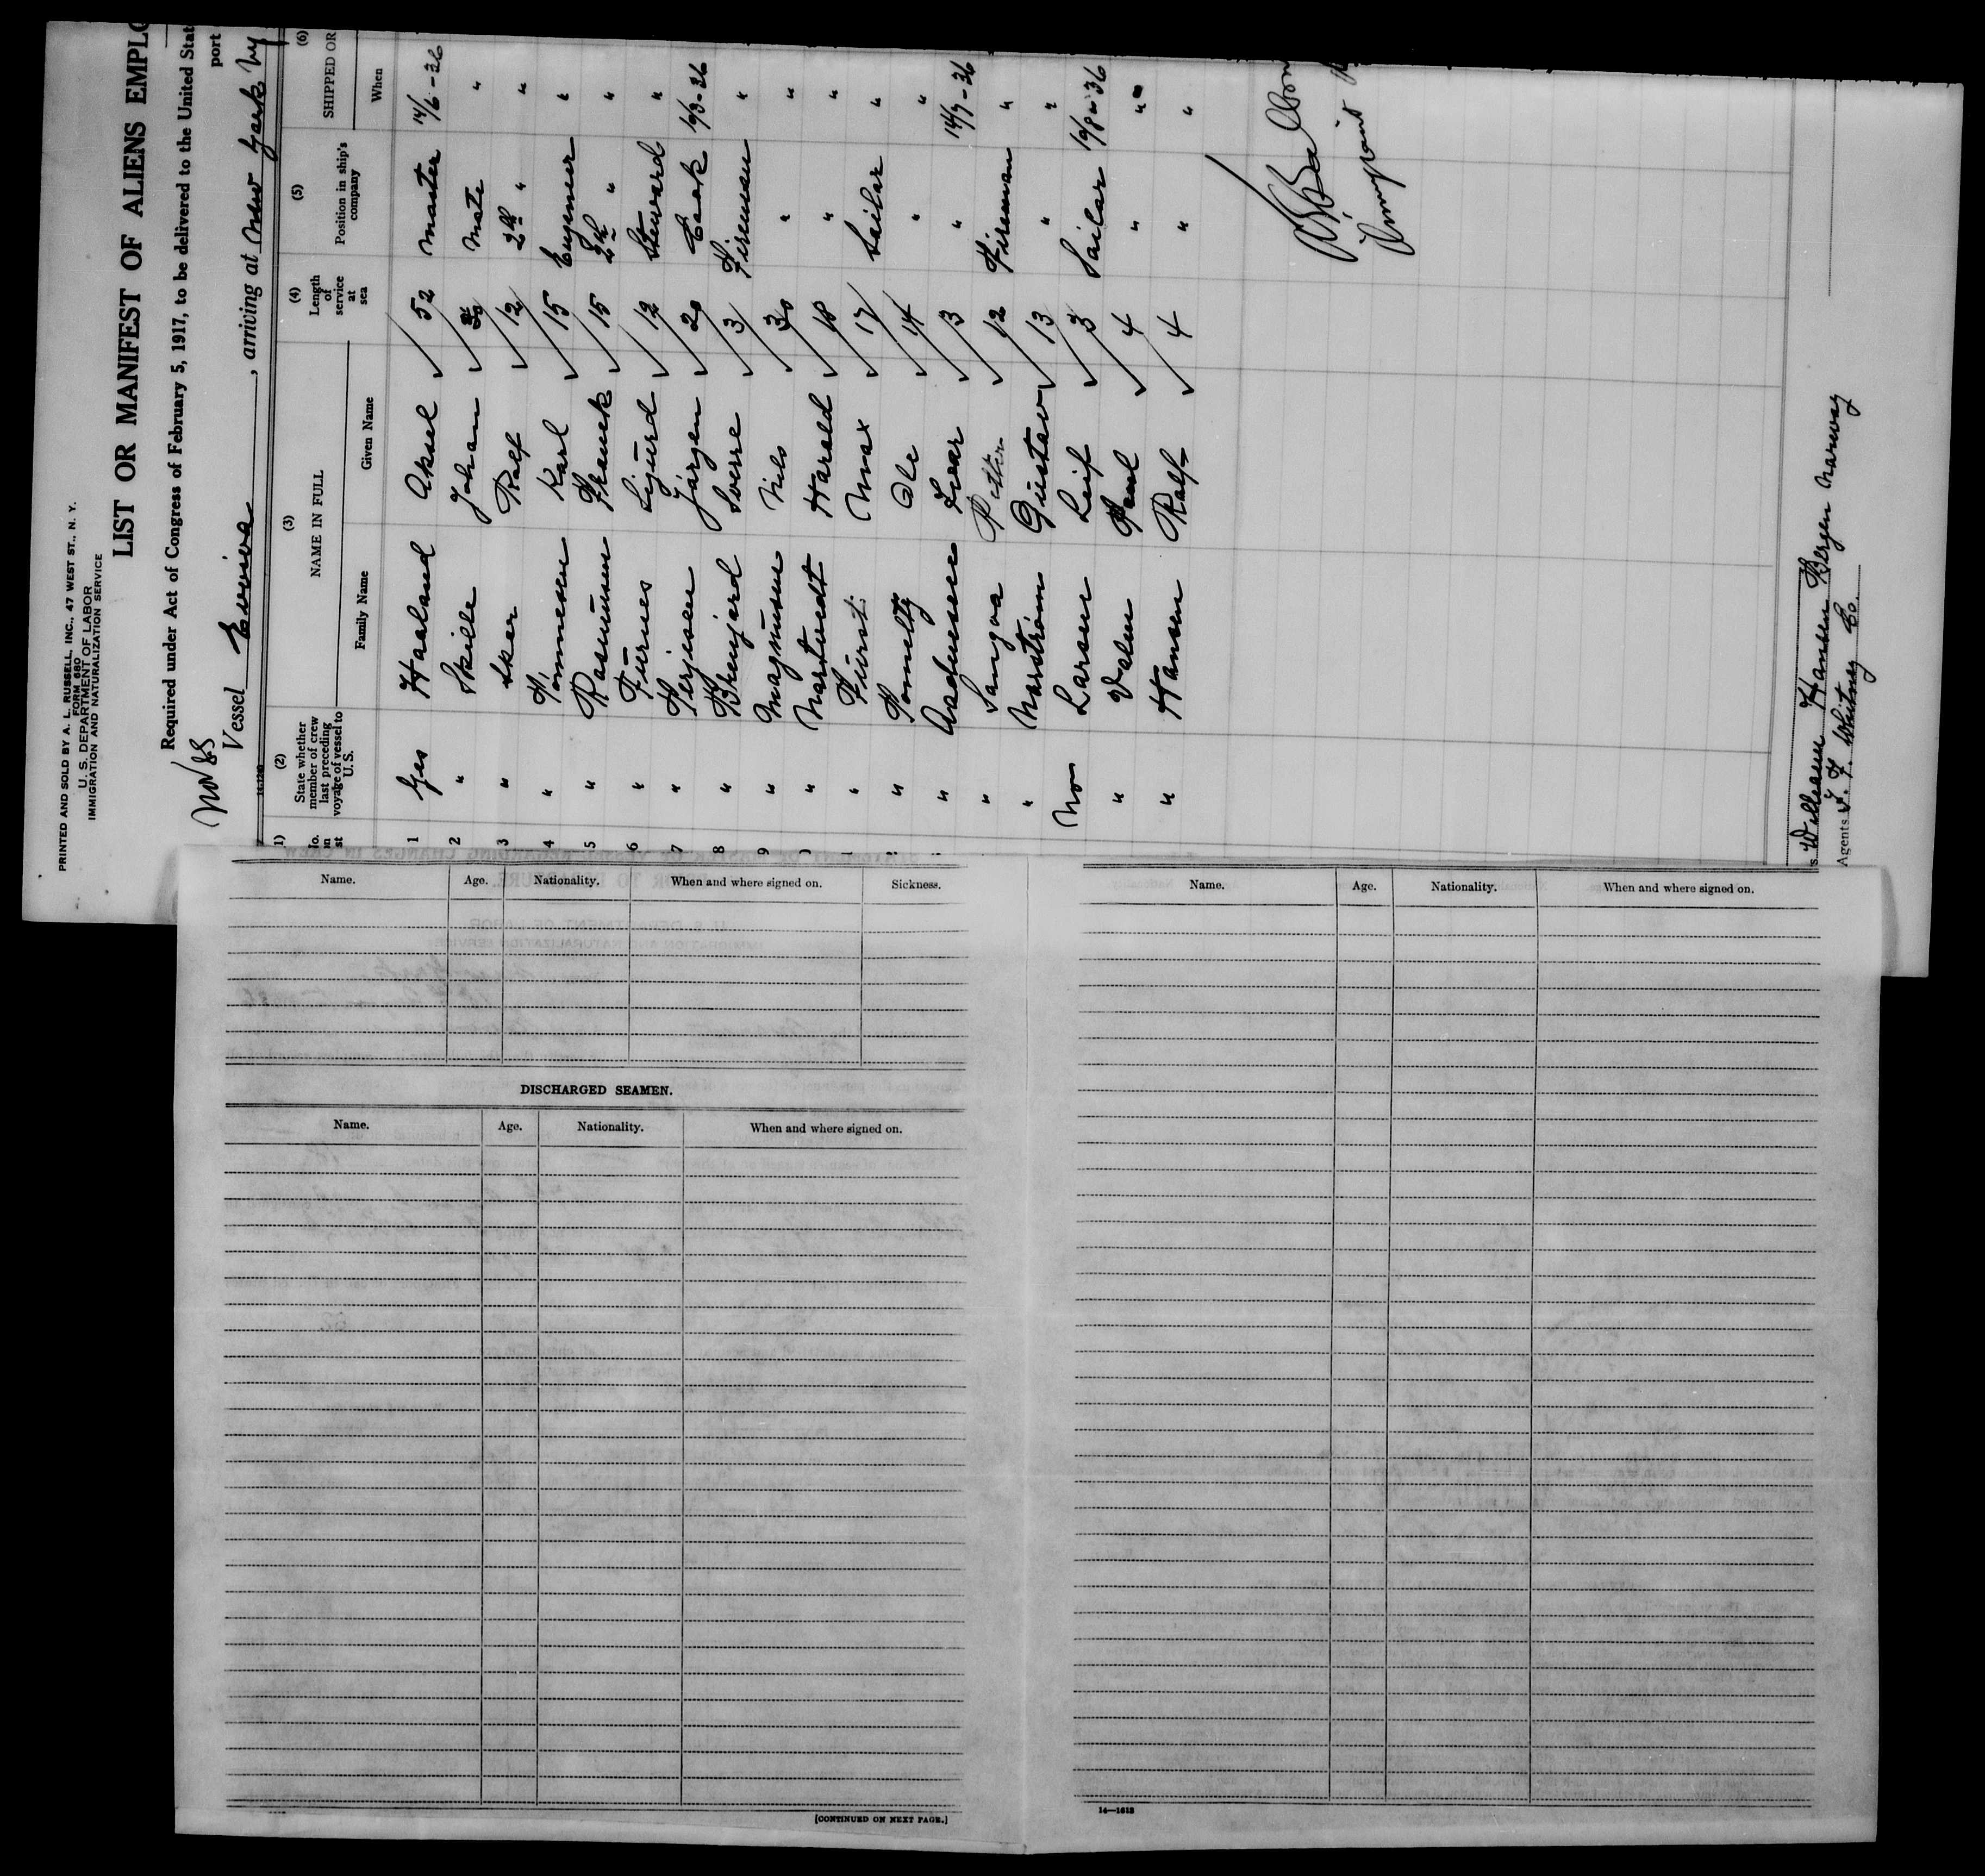 PRINTED AND SOLD BY A. L. RUSSELL, INC., 47 WEST ST., N. Y.
FORM 680
U. S. DEPARTMENT OF LABOR
IMMIGRATION AND NATURALIZATION SERVICE
LIST OR MANIFEST OF ALIENS EMPLO
Required under Act of Congress of February 5, 1917, to be delivered to the United Stat
port
Vessel Eviva, arriving at New York Ny
(2) (3) (4) (5) (6)
State whether member of crew last preceding voyage of vessel to U.S. NAME IN FULL Length of service at sea Position in ship's company SHIPPED OR
Family Name Given Name When
1 Yes Haaland Aksel 52 Master 14/6-36
2 " Skille Johan Mate "
3 " Skar Ralf 12 2nd " "
4 " Tönnesen Karl 15 Engineer "
5 " Rasmussen Franck 15 2nd " "
6 " Furnes Sigurd 12 Steward "
7 " Terjesen Jörgen 20 Cook 19/3-36
8 " Sverre 3 Firemann "
9 " Magnusen Nils 30 " "
" Martvedt Harald 18 " "
" Fürst Max 17 Sailor "
" Ole 14 " "
" Aadnesen Ivar 13 " 14/7-36
" Petter 12 Fireman "
" Marström Gustav 13 " "
Non Larsen Leif 3 Sailor 19/8-36
" Valen Paul 4 " "
" Hansen Ralf 4 " "
Willann Hansen Bergen Norway
Agents J. F. Whitney Co.
Name. Age. Nationality. When and where signed on. Sickness.
DISCHARGED SEAMEN.
Name. Age. Nationality. When and where signed on.
[CONTINUED ON NEXT PAGE.]
Name. Age. Nationality. When and where signed on.
14—1613